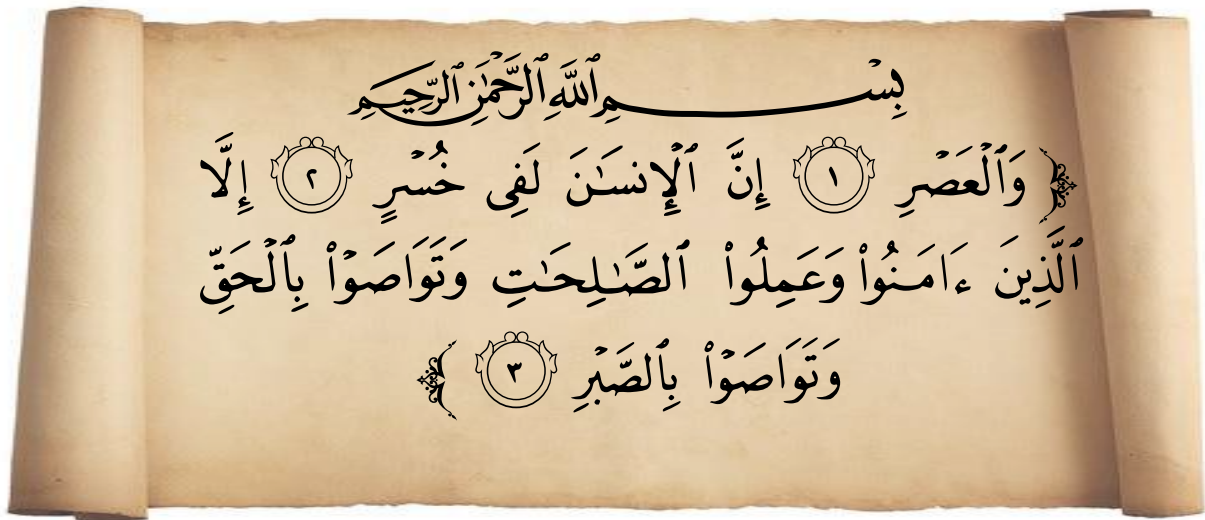 بِسْمِ ٱللَّهِ ٱلرَّحْمَٰنِ ٱلرَّحِيمِ
﴿ وَٱلْعَصْرِ ١ إِنَّ ٱلْإِنسَـٰنَ لَفِى خُسْرٍ ٢ إِلَّا
ٱلَّذِينَ ءَامَنُوا۟ وَعَمِلُوا۟ ٱلصَّـٰلِحَـٰتِ وَتَوَاصَوْا۟ بِٱلْحَقِّ
وَتَوَاصَوْا۟ بِٱلصَّبْرِ ٣ ﴾